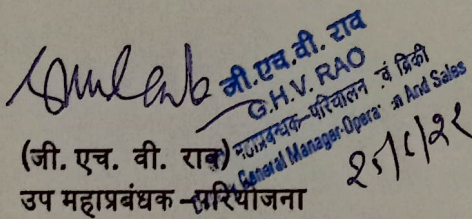 जी.एच.वी. राव
G.H.V. RAO
महाप्रबन्धक-परिचालन एवं बिक्री
General Manager-Operation And Sales
(जी. एच. वी. राव)
उप महाप्रबंधक - परियोजना